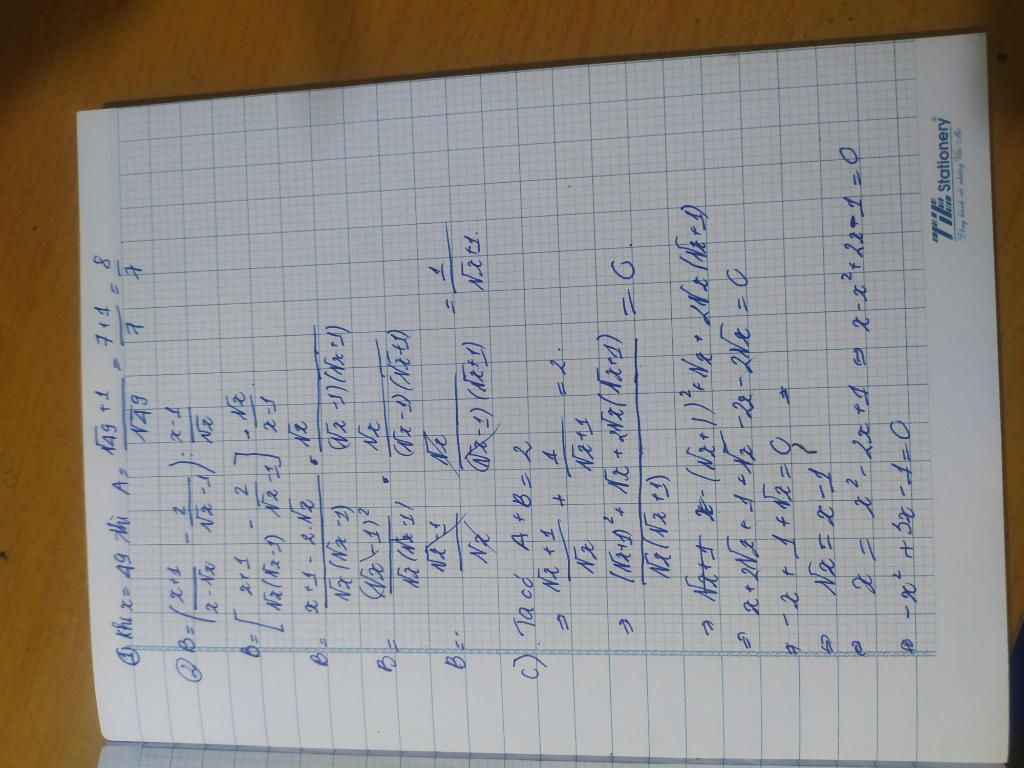 ① Khi x = 49 thì A = (√49 + 1)/√49 = (7+1)/7 = 8/7
② B = ((x+1)/(x-√x) - 2/(√x-1)) : (x-1)/√x
B = [(x+1)/(√x(√x-1)) - 2/(√x-1)] . √x/(x-1)
B = (x+1-2.√x)/(√x(√x-1)) . √x/((√x-1)(√x+1))
B = (√x-1)²/(√x(√x-1)) . √x/((√x-1)(√x+1))
B = (√x-1)/√x . √x/((√x-1)(√x+1)) = 1/(√x+1).
C). Ta có A + B = 2
⇒ (√x+1)/√x + 1/(√x+1) = 2.
⇒ ((√x+1)² + √x + 2√x(√x+1))/(√x(√x+1)) = 0.
⇒ (√x+1)² + √x + 2√x(√x+1)
⇒ x + 2√x + 1 + √x - 2x - 2√x = 0
⇒ -x + 1 + √x = 0
⇒ √x = x - 1
⇒ x = x² - 2x + 1 ⇔ x - x² + 2x + 1 = 0
⇒ -x² + 3x - 1 = 0
Stationery